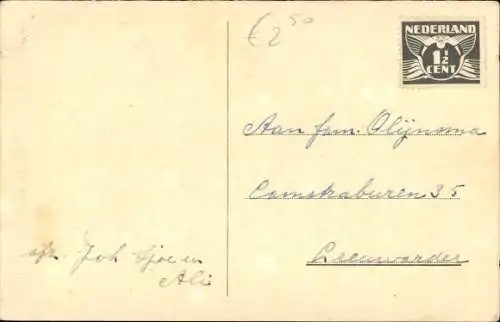 €2,50
NEDERLAND
1½
CENT
Aan fam. Olijnsma
Camstraburen 35
Leeuwarden
afz. Joh Sjoe en
Ali